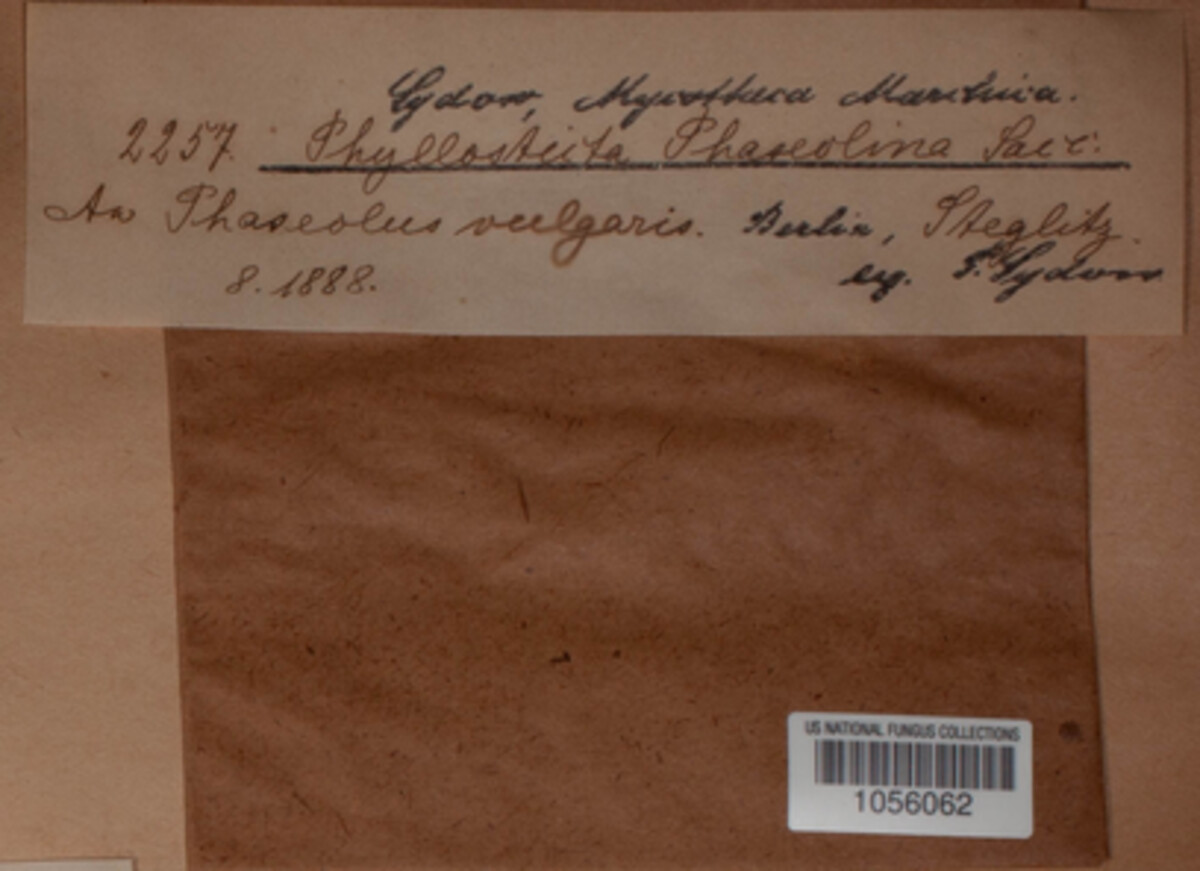 Sydow, Mycotheca Marchica.
2257. Phyllosticta Phaseolina Sacc.
An Phaseolus vulgaris. Berlin, Steglitz.
8. 1888.
leg. P. Sydow
US NATIONAL FUNGUS COLLECTIONS
1056062